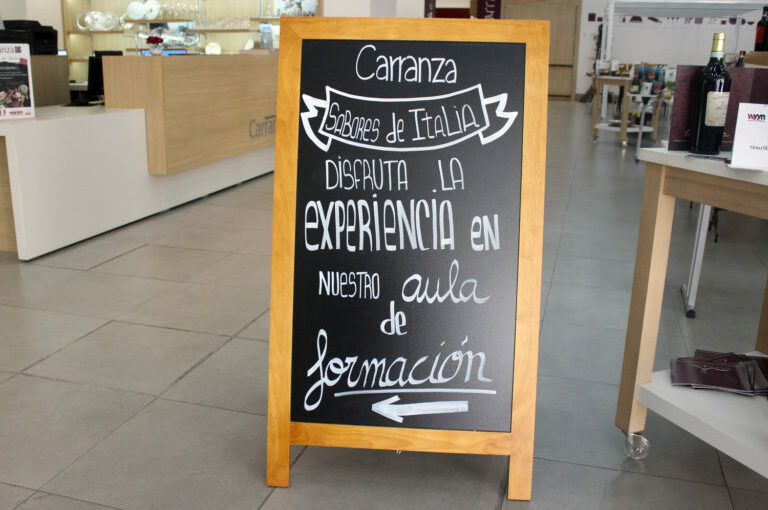 Carranza
SABORES de ITALIA
DISFRUTA LA
EXPERIENCIA en
NUESTRO aula
de
formación